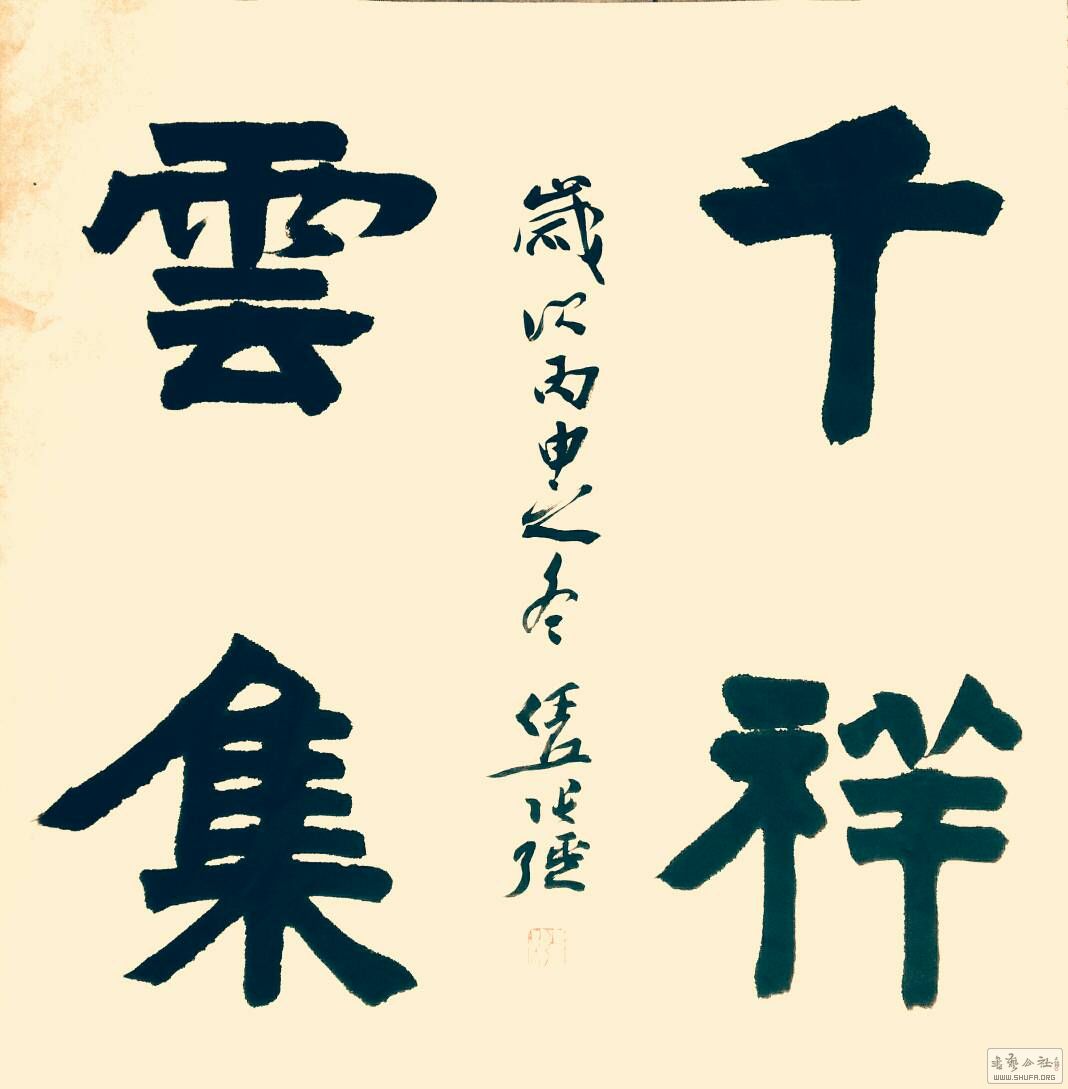 千祥
雲集
歲次丙申之冬
WWW.SHUFA.ORG